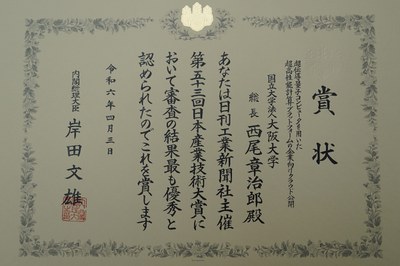 賞状
超伝導量子コンピュータを用いた
超高性能計算プラットフォームの企業向けクラウド公開
国立大学法人大阪大学
総長 西尾章治郎殿
あなたは日刊工業新聞社主催
第五十三回日本産業技術大賞に
おいて審査の結果最も優秀と
認められたのでこれを賞します
令和六年四月三日
内閣総理大臣 岸田文雄